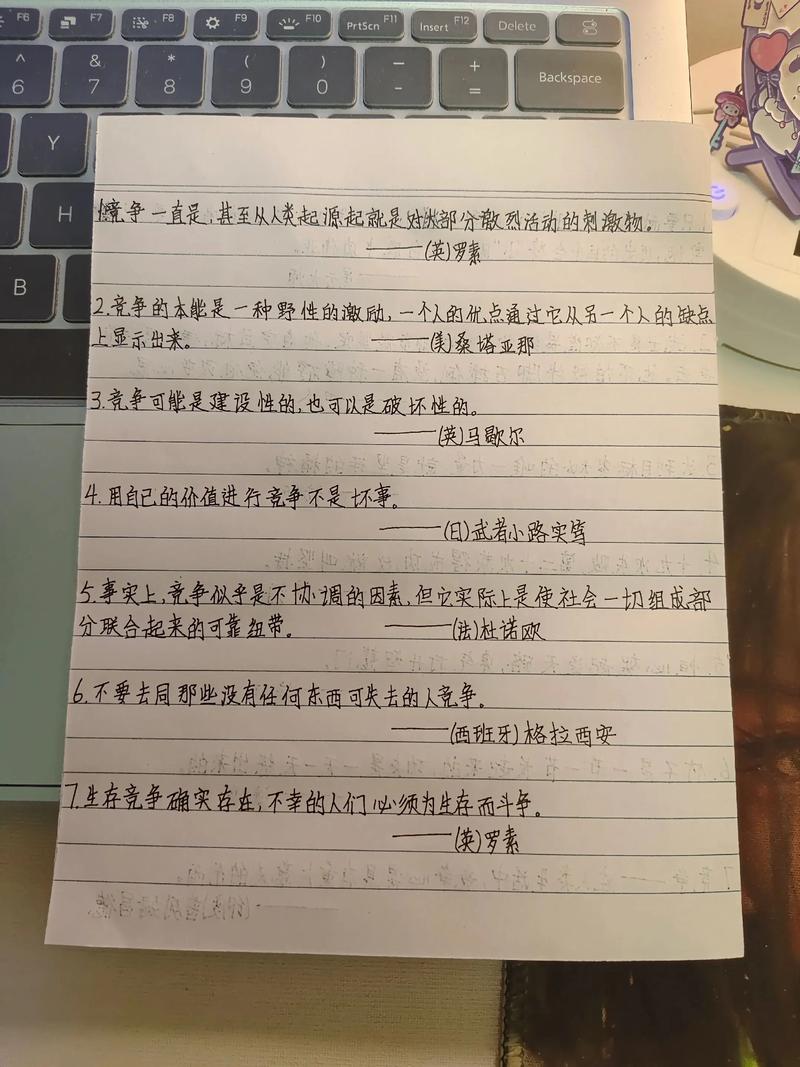 F6 F7 F8 F9 F10 PrtScn F11 Insert F12 Delete
^ & * ( ) — +
6 7 8 9 0 - = Backspace
Y
H
B
1.竞争一直是,甚至从人类起源起就是对大部分激烈活动的刺激物。
——(英)罗素
2.竞争的本能是一种野性的激励,一个人的优点通过它从另一个人的缺点
上显示出来。 ——(美)桑塔亚那
3.竞争可能是建设性的,也可以是破坏性的。
——(英)马歇尔
4.用自己的价值进行竞争不是坏事。
——(日)武者小路实笃
5.事实上,竞争似乎是不协调的因素,但它实际上是使社会一切组成部
分联合起来的可靠纽带。 ——(法)杜诺欧
6.不要去同那些没有任何东西可失去的人竞争。
——(西班牙)格拉西安
7.生存竞争确实存在,不幸的人们必须为生存而斗争。
——(英)罗素